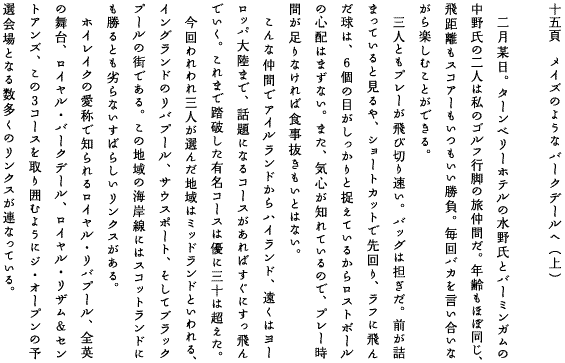 十五頁　メイズのようなバークデールへ（上）
　二月某日。ターンベリーホテルの水野氏とバーミンガムの
中野氏の二人は私のゴルフ行脚の旅仲間だ。年齢もほぼ同じ、
飛距離もスコアーもいつもいい勝負。毎回バカを言い合いな
がら楽しむことができる。
　三人ともプレーが飛び切り速い。バッグは担ぎだ。前が詰
まっていると見るや、ショートカットで先回り、ラフに飛ん
だ球は、６個の目がしっかりと捉えているからロストボール
の心配はまずない。また、気心が知れているので、プレー時
間が足りなければ食事抜きもいとはない。
　こんな仲間でアイルランドからハイランド、遠くはヨー
ロッパ大陸まで、話題になるコースがあればすぐにすっ飛ん
でいく。これまで踏破した有名コースは優に三十は超えた。
　今回われわれ三人が選んだ地域はミッドランドといわれる、
イングランドのリバプール、サウスポート、そしてブラック
プールの街である。この地域の海岸線にはスコットランドに
も勝るとも劣らないすばらしいリンクスがある。
　ホイレイクの愛称で知られるロイヤル・リバプール、全英
の舞台、ロイヤル・バークデール、ロイヤル・リザム＆セン
トアンズ、この３コースを取り囲むようにジ・オープンの予
選会場となる数多くのリンクスが連なっている。